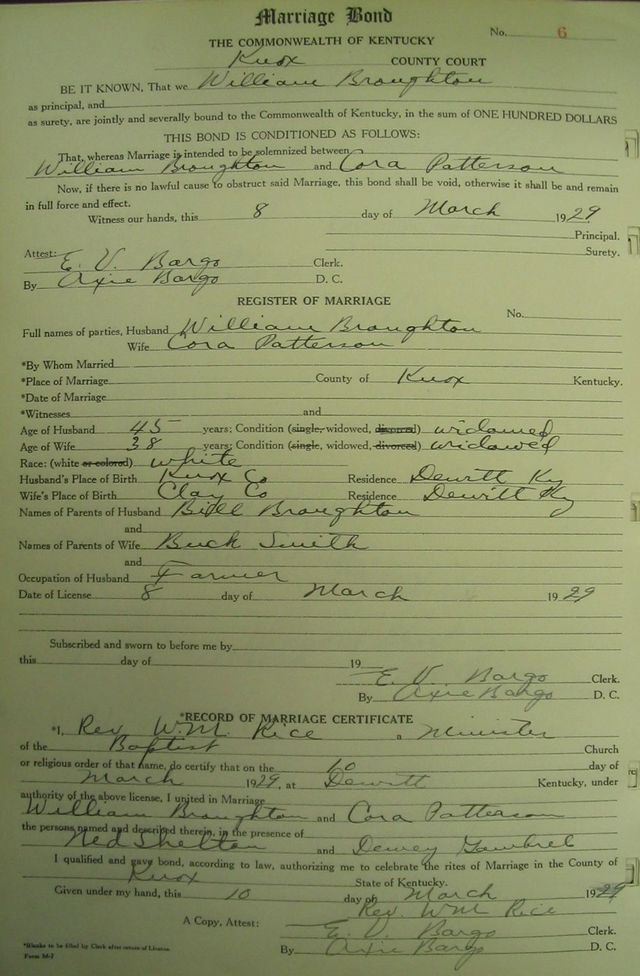 Marriage Bond
No. 6
THE COMMONWEALTH OF KENTUCKY
Knox COUNTY COURT
BE IT KNOWN, That we William Broughton
as principal, and
as surety, are jointly and severally bound to the Commonwealth of Kentucky, in the sum of ONE HUNDRED DOLLARS
THIS BOND IS CONDITIONED AS FOLLOWS:
That, whereas Marriage is intended to be solemnized between
William Broughton and Cora Patterson
Now, if there is no lawful cause to obstruct said Marriage, this bond shall be void, otherwise it shall be and remain
in full force and effect.
Witness our hands, this 8 day of March 1929
Principal.
Surety.
Attest: E. V. Bargo Clerk.
By Axie Bargo D. C.
REGISTER OF MARRIAGE
No.
Full names of parties, Husband William Broughton
Wife Cora Patterson
*By Whom Married
*Place of Marriage County of Knox Kentucky.
*Date of Marriage
*Witnesses and
Age of Husband 45 years; Condition (single, widowed, divorced) widowed
Age of Wife 38 years; Condition (single, widowed, divorced) widowed
Race: (white or colored) white
Husband's Place of Birth Knox Co Residence Dewitt Ky
Wife's Place of Birth Clay Co Residence Dewitt Ky
Names of Parents of Husband Bill Broughton
and
Names of Parents of Wife Buck Smith
and
Occupation of Husband Farmer
Date of License 8 day of March 1929
Subscribed and sworn to before me by
this day of 19
E. V. Bargo Clerk.
By Axie Bargo D. C.
*RECORD OF MARRIAGE CERTIFICATE
*I, Rev. W.M. Rice a Minister
of the Baptist Church
or religious order of that name, do certify that on the 10 day of
March 1929, at Dewitt Kentucky, under
authority of the above license, I united in Marriage
William Broughton and Cora Patterson
the persons named and described therein, in the presence of
Ned Shelton and Dewey Gambrel
I qualified and gave bond, according to law, authorizing me to celebrate the rites of Marriage in the County of
Knox State of Kentucky.
Given under my hand, this 10 day of March 1929
Rev. WM Rice
A Copy, Attest: E. V. Bargo Clerk.
By Axie Bargo D. C.
*Blanks to be filled by Clerk after return of License.
Form M-2